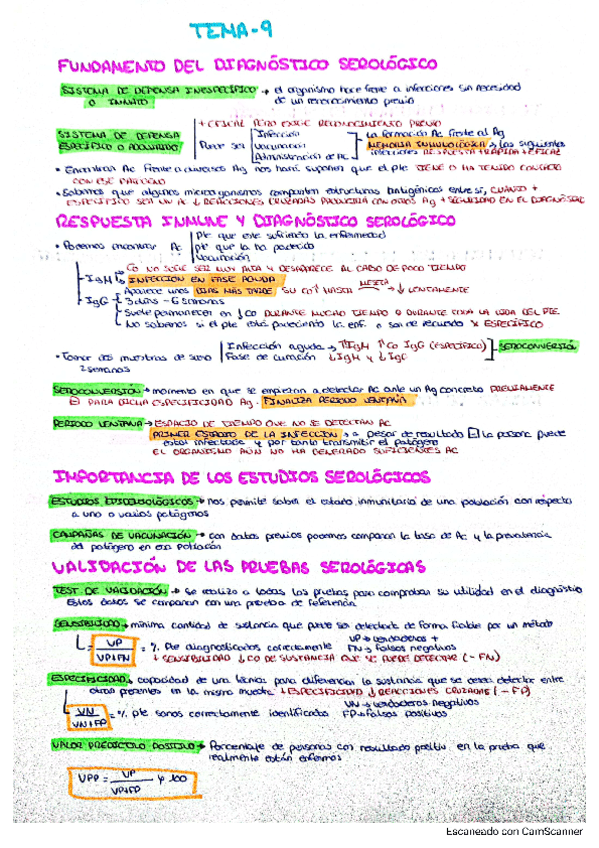 TEMA-9
FUNDAMENTO DEL DIAGNÓSTICO SEROLÓGICO
SISTEMA DE DEFENSA INESPECÍFICO → el organismo hace frente a infecciones sin necesidad
O INNATO de un reconocimiento previo
+ EFICAZ PERO EXIGE RECONOCIMIENTO PREVIO
SISTEMA DE DEFENSA
ESPECÍFICO O ADQUIRIDO
Puede ser
Infección
Vacunación
Administración de Ac
La formación Ac frente al Ag
MEMORIA INMUNOLÓGICA → las siguientes
infecciones RESPUESTA + RÁPIDA + EFICAZ
• Encontrar Ac frente a diversos Ag nos hará suponer que el pte TIENE O HA TENIDO CONTACTO
CON ESE PATÓGENO
• Sabemos que algunos microorganismos comparten estructuras antigénicas entre sí, CUANTO +
ESPECÍFICO SEA UN AC ↓ REACCIONES CRUZADAS PRODUCIRÁ CON OTROS Ag + SEGURIDAD EN EL DIAGNÓSTICO
RESPUESTA INMUNE Y DIAGNÓSTICO SEROLÓGICO
• Podemos encontrar Ac
Pte que este sufriendo la enfermedad
Pte que la ha padecido
Vacunación
IgM
CO NO SUELE SER MUY ALTA Y DESAPARECE AL CABO DE POCO TIEMPO
INFECCIÓN EN FASE AGUDA
Aparece unos DÍAS MÁS TARDE SU CO↑ HASTA MESETA → ↓ LENTAMENTE
IgG 3 días - 6 semanas
Suele permanecer en ↓ CO DURANTE MUCHO TIEMPO O DURANTE TODA LA VIDA DEL PTE.
No sabremos si el pte está padeciendo la enf. o son de recuerdo ESPECÍFICO
• Tomar dos muestras de suero
2 semanas
Infección aguda → ↑IgM ↑Co IgG (ESPECÍFICA)
Fase de curación ↓IgM y ↓IgG
SEROCONVERSIÓN
SEROCONVERSIÓN → momento en que se empiezan a detectar Ac ante un Ag concreto PREVIAMENTE
⊖ PARA DICHA ESPECIFICIDAD Ag. FINALIZA PERIODO VENTANA
PERIODO VENTANA → ESPACIO DE TIEMPO QUE NO SE DETECTAN AC
PRIMER ESTADIO DE LA INFECCIÓN → a pesar de resultado ⊟ la persona puede
estar infectada y por tanto transmitir el patógeno
EL ORGANISMO AÚN NO HA GENERADO SUFICIENTES AC
IMPORTANCIA DE LOS ESTUDIOS SEROLÓGICOS
ESTUDIOS EPIDEMIOLÓGICOS → nos permite saber el estado inmunitario de una población con respecto
a uno o varios patógenos
CAMPAÑAS DE VACUNACIÓN → con datos previos podemos comparar la tasa de Ac y la prevalencia
del patógeno en esa población
VALIDACIÓN DE LAS PRUEBAS SEROLÓGICAS
TEST DE VALIDACIÓN → se realiza a todas las pruebas para comprobar su utilidad en el diagnóstico
Estos datos se comparan con una prueba de referencia
SENSIBILIDAD → mínima cantidad de sustancia que puede ser detectada de forma fiable por un método
VP / VP+FN = % Pte diagnosticados correctamente
VP → verdaderos +
FN → falsos negativos
↓ SENSIBILIDAD ↓ CO DE SUSTANCIA QUE SE PUEDE DETECTAR (- FN)
ESPECIFICIDAD → capacidad de una técnica para diferenciar la sustancia que se desea detectar entre
otras presentes en la misma muestra ↓ ESPECIFICIDAD ↓ REACCIONES CRUZADAS (- FP)
VN / VN+FP = % pte sanos correctamente identificados
VN → verdaderos negativos
FP → falsos positivos
VALOR PREDICTIVO POSITIVO → Porcentaje de personas con resultado positivo en la prueba que
realmente están enfermos
VPP = VP / VP+FP × 100
Escaneado con CamScanner